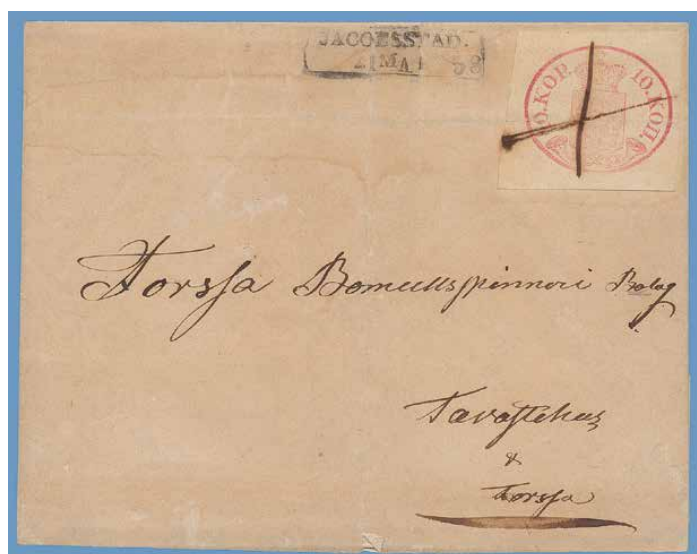 JACOBSSTAD.
2 MAI 58
10.KOP. 10.КОП.
Forssa Bomullsspinneri Bolag
Tavastehus
&
Forssa